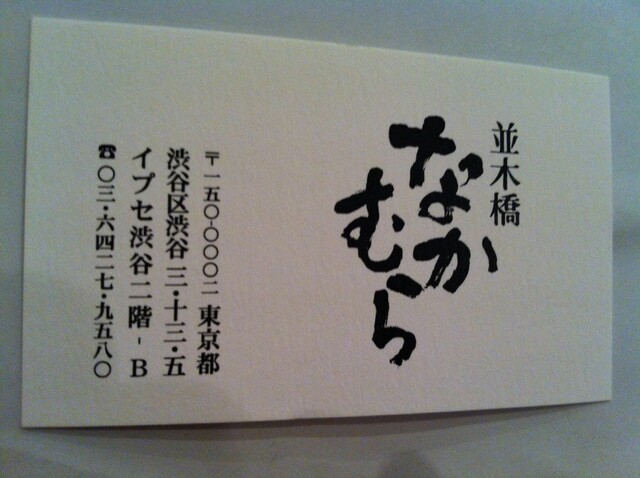 並木橋
なかむら
〒一五〇-〇〇〇二 東京都
渋谷区渋谷三・十三・五
イプセ渋谷二階-B
☎〇三・六四二七・九五八〇